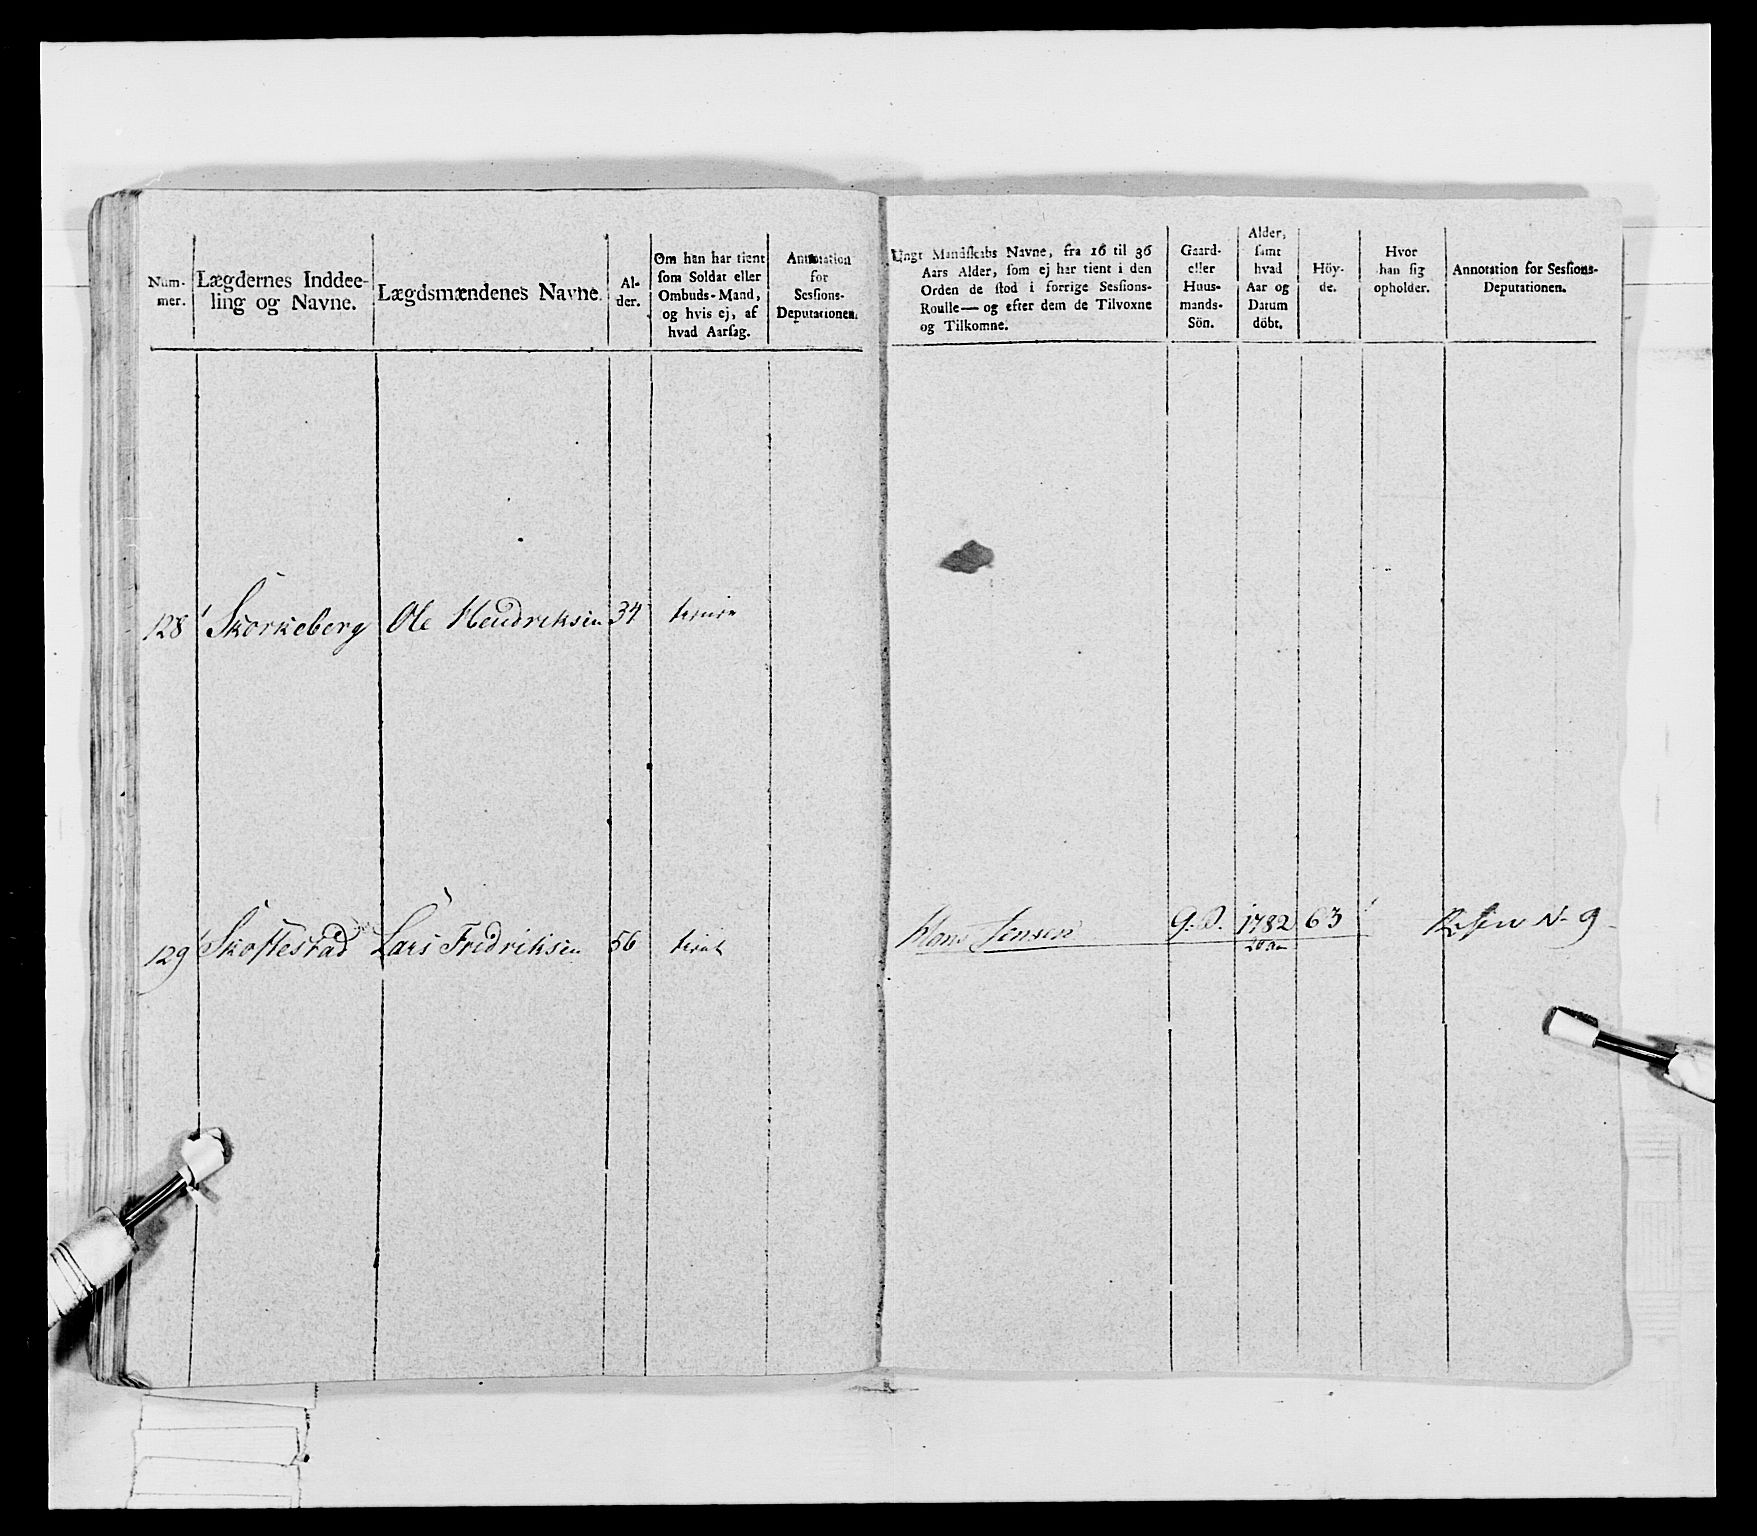 Num-
mer.
Lægdernes Inddee-
ling og Navne.
Lægdsmændenes Navne.
Al-
der.
Om han har tient
som Soldat eller
Ombuds-Mand,
og hvis ej, af
hvad Aarsag.
Annotation
for
Sessions-
Deputationen.
Ungt Mandskabs Navne, fra 16 til 36
Aars Alder, som ej har tient i den
Orden de stod i forrige Sessions-
Roulle — og efter dem de Tilvoxne
og Tilkomne.
Gaard-
eller
Huus-
mands-
Sön.
Alder,
samt
hvad
Aar og
Datum
döbt.
Höy-
de.
Hvor
han sig
opholder.
Annotation for Sessions-
Deputationen.
128 Skorkeberg Ole Hendriksen 34
129 Skoftestad Lars Fridriksen 56 tient Hans Jensen G.S. 1782 63 N- 9